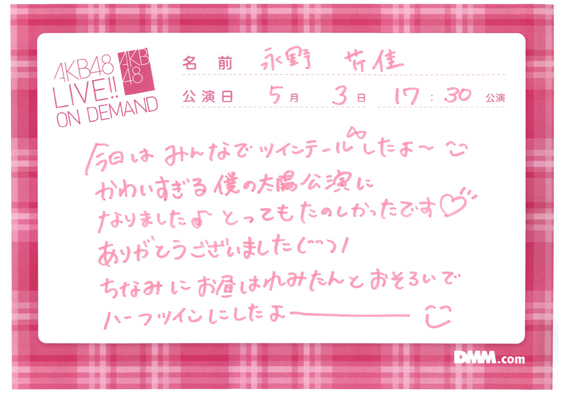 AKB48
LIVE!!
ON DEMAND
AKB
48
名前 永野 芹佳
公演日 5月 3日 17:30 公演
今日は みんなでツインテールしたよ〜
かわいすぎる 僕の太陽公演に
なりました♪ とってもたのしかったです♡
ありがとうございました(^^)/
ちなみに お昼はれみたんとおそろいで
ハーフツインにしたよー
DMM.com